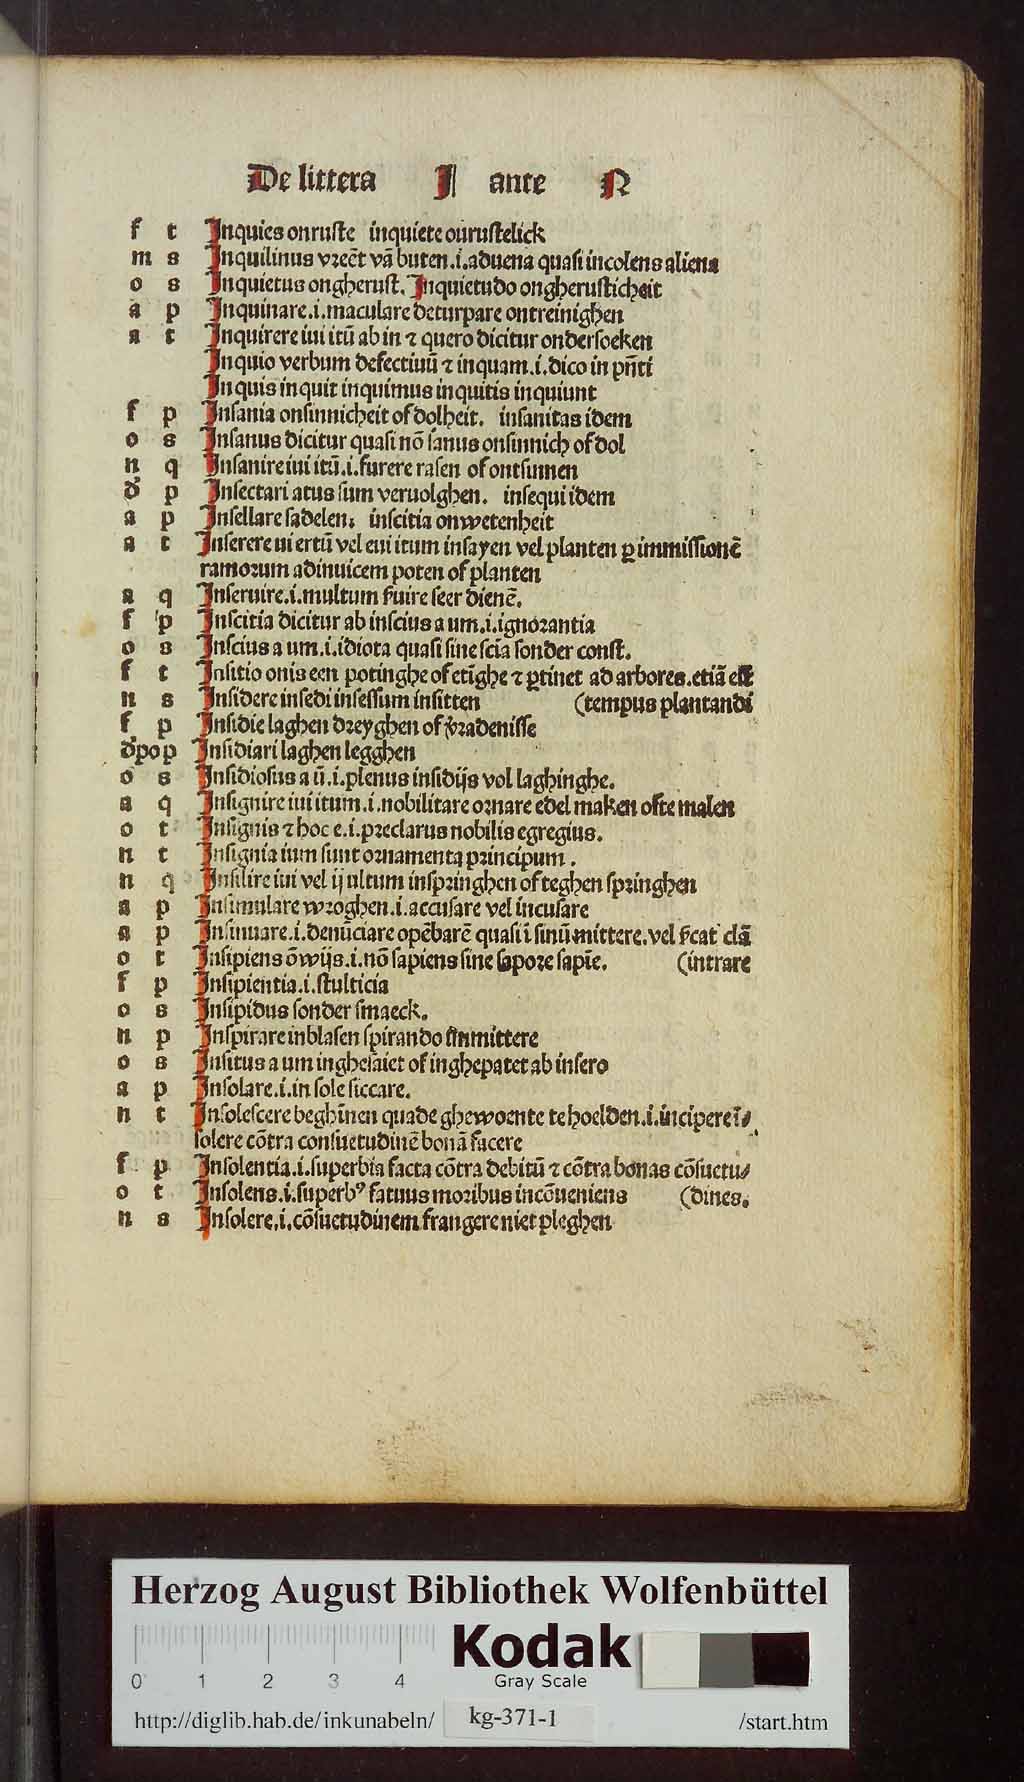 De littera I ante N
f t Inquies onruste inquiete onrustelick
m s Inquilinus vreēt vā buten .i. aduena quasi incolens aliena
o s Inquietus ongherust. Inquietudo ongherusticheit
a p Inquinare .i. maculare deturpare ontreinighen
a t Inquirere iui itū ab in ⁊ quero dicitur ondersoeken
Inquio verbum defectiuū ⁊ inquam .i. dico in pn̄ti
Inquis inquit inquimus inquitis inquiunt
f p Insania onsinnicheit of dolheit. insanitas idem
o s Insanus dicitur quasi nō sanus onsinnich of dol
n q Insanire iui itū .i. furere rasen of ontsinnen
d' p Insectari atus sum veruolghen. insequi idem
a p Insellare sadelen. inscitia onwetenheit
a t Inserere ui ertū vel eui itum insayen vel planten ꝑ immissionē
ramorum adinuicem poten of planten
a q Inseruire .i. multum ẜuire seer dienē.
f p Inscitia dicitur ab inscius a um .i. ignorantia
o s Inscius a um .i. idiota quasi sine scīa sonder const.
f t Insitio onis een potinghe of etīghe ⁊ ꝑtinet ad arbores. etiā est
n s Insidere insedi insessum insitten (tempus plantandi
f p Insidie laghen dreyghen of v̓radenisse
d'po p Insidiari laghen legghen
o s Insidiosus a ū .i. plenus insidijs vol laghinghe.
a q Insignire iui itum .i. nobilitare ornare edel maken ofte malen
o t Insignis ⁊ hoc e .i. preclarus nobilis egregius.
n t Insignia ium sunt ornamenta principum.
n q Insilire iui vel ij ultum inspringhen of teghen springhen
a p Insimulare wroghen .i. accusare vel incusare
a p Insinuare .i. denūciare opēbarē quasi ī sinū mittere. vel ẜcat clā
o t Insipiens ōwijs .i. nō sapiens sine sapore sapīe. (intrare
f p Insipientia .i. stulticia
o s Insipidus sonder smaeck.
n p Inspirare inblasen spirando immittere
o s Insitus a um inghesaiet of inghepatet ab insero
a p Insolare .i. in sole siccare.
n t Insolescere beghīnen quade ghewoente te hoelden .i. incipere ī⸗
solere cōtra consuetudinē bonā facere
f p Insolentia .i. superbia facta cōtra debitū ⁊ cōtra bonas cōsuetu⸗
o t Insolens .i. superbꝰ fatuus moribus incōueniens (dines.
n s Insolere .i. cōsuetudinem frangere niet pleghen
Herzog August Bibliothek Wolfenbüttel
Kodak
Gray Scale
0 1 2 3 4
http://diglib.hab.de/inkunabeln/ kg-371-1 /start.htm